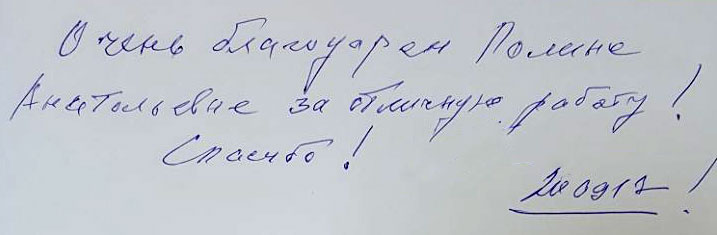 Очень благодарен Полине
Анатольевне за отличную работу!
Спасибо!
200917!